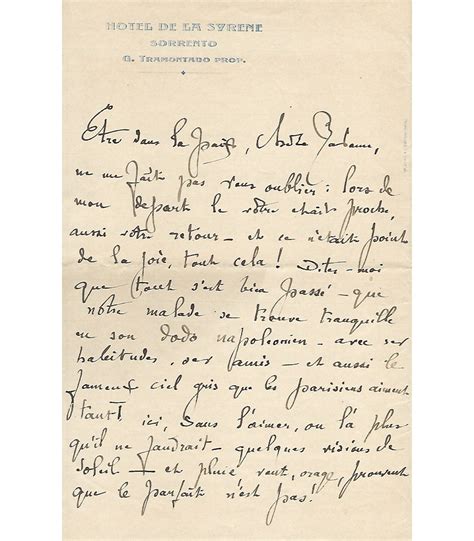 HOTEL DE LA SYRENE
SORRENTO
G. TRAMONTANO PROP.
Etre dans la paix, chère Madame,
ne me fait pas vous oublier : lors de
mon départ le vôtre était proche,
aussi votre retour – et ce n'était point
de la joie, tout cela ! Dites-moi
que tout s'est bien passé – que
notre malade se trouve tranquille
en son dodo napoléonien – avec ses
habitudes, ses amis – et aussi le
fameux ciel gris que les parisiens aiment
tant ici, sans l'aimer, ou là plus
qu'il ne faudrait – quelques visions de
soleil – et pluie vent, orage, prouvent
que le parfait n'est pas !